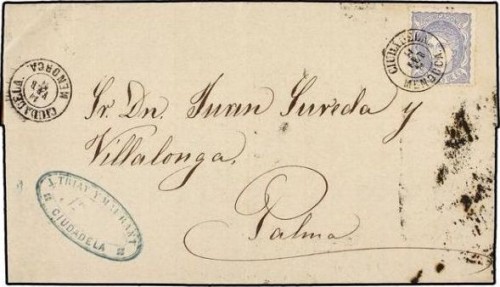 CIUDADELA
MENORCA
CIUDADELA
MENORCA
Sr. Dn. Juan Sureda y
Villalonga.
Palma
CIUDADELA